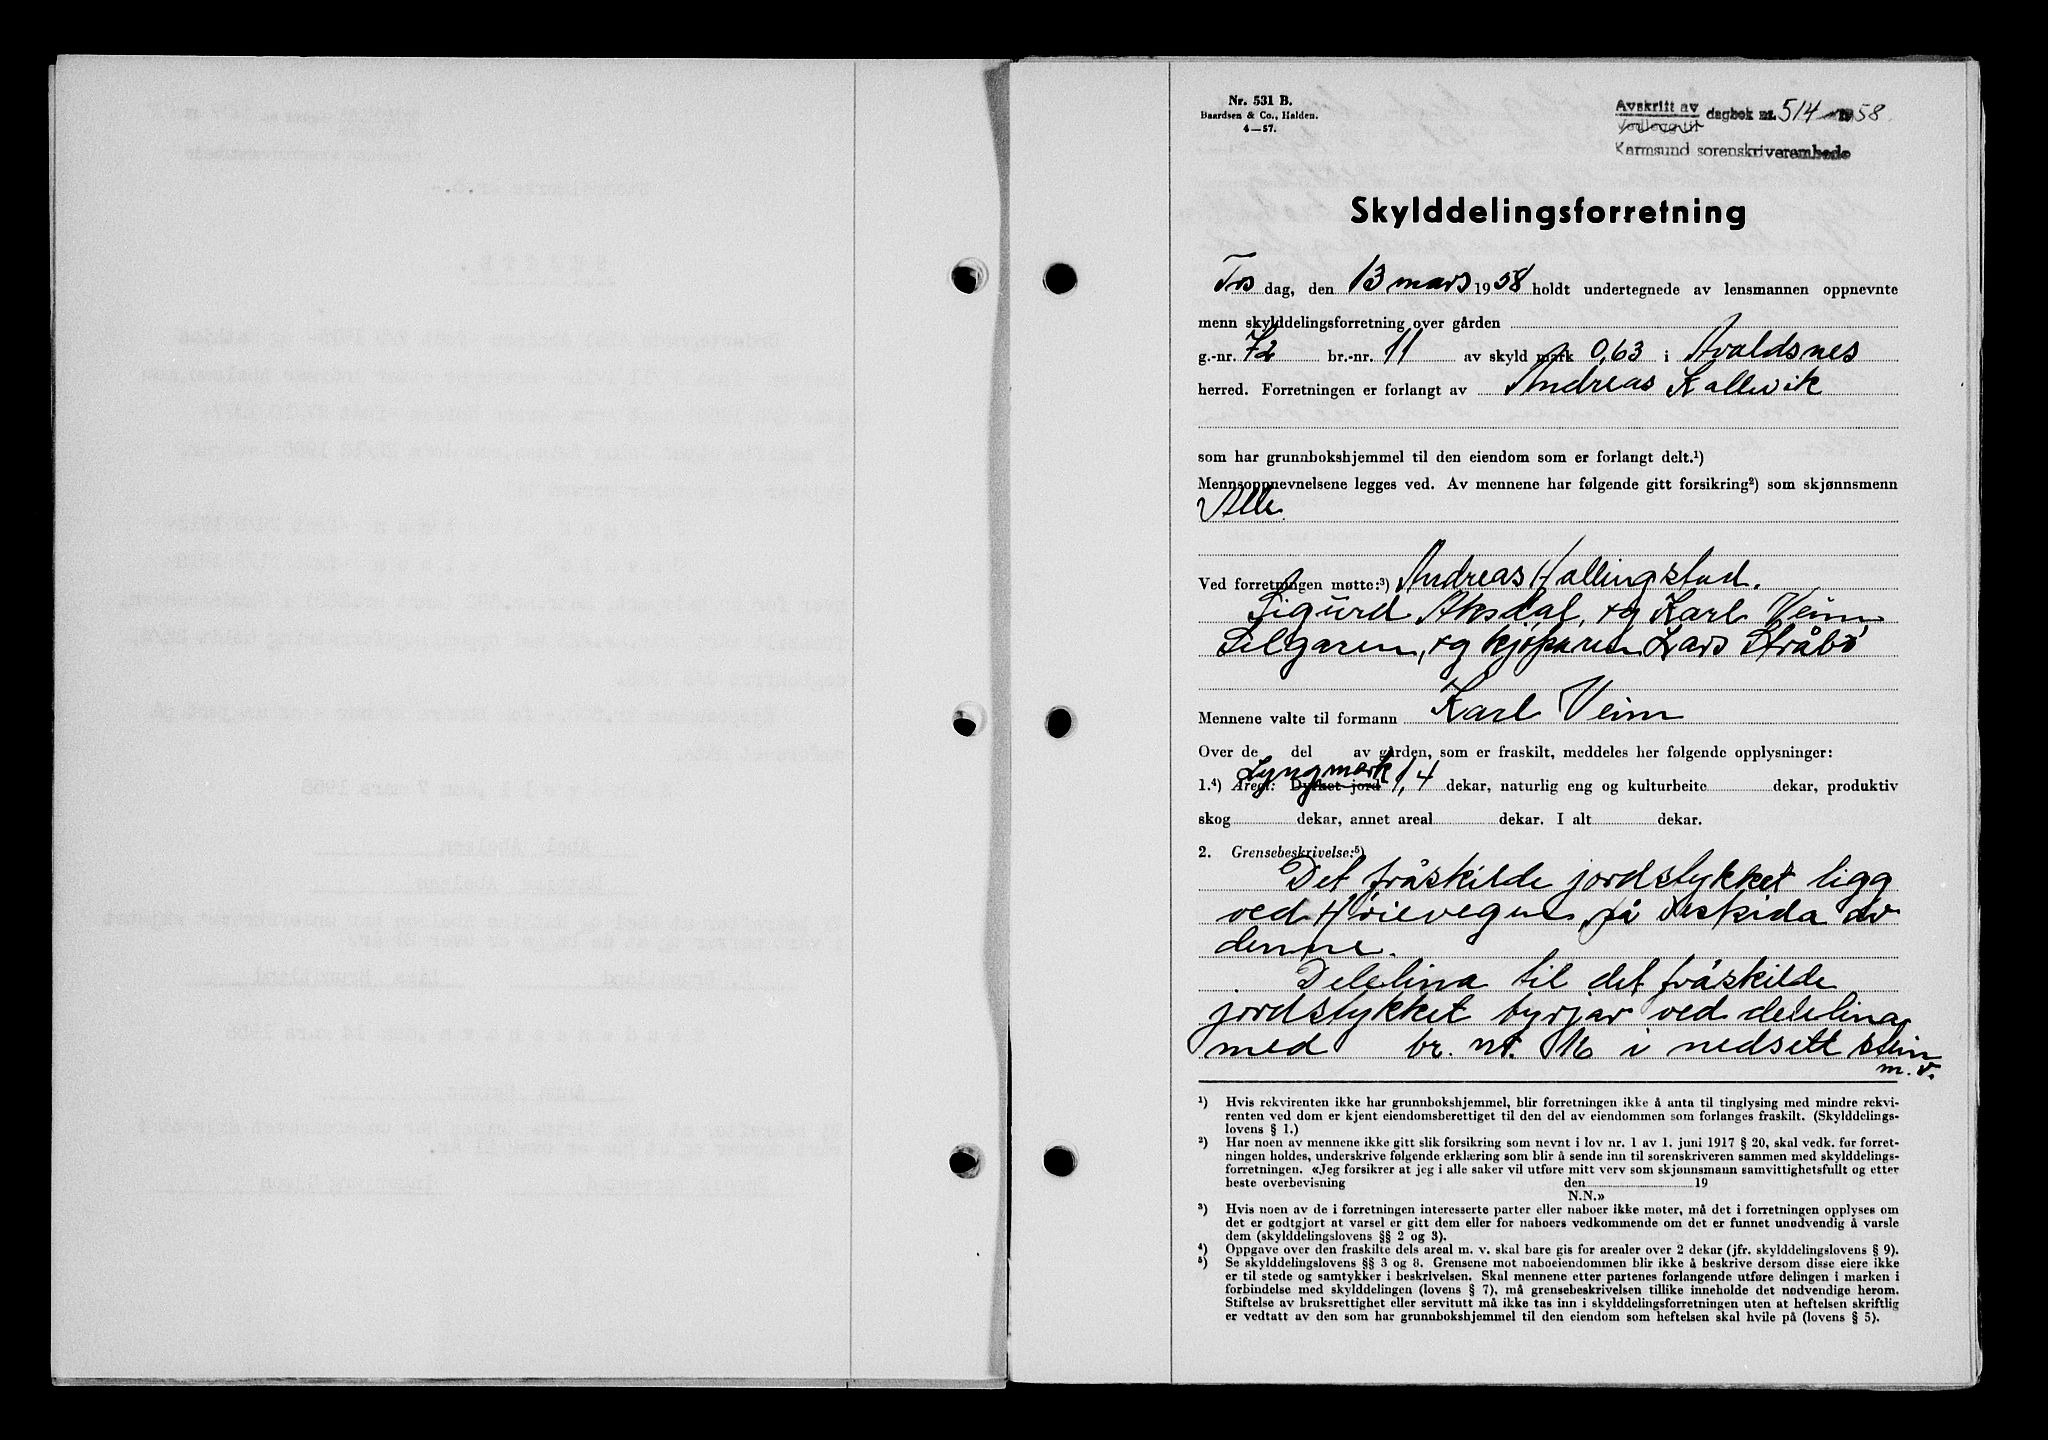 Nr. 531 B.
Baardsen & Co., Halden.
4—57.
Avskrift av
dagbok nr. 514 1958.
Karmsund sorenskriverembede
Skylddelingsforretning
Tors dag, den 13 mars 1958 holdt undertegnede av lensmannen oppnevnte
menn skylddelingsforretning over gården
g.-nr. 72 br.-nr. 11 av skyld mark 0,63 i Avaldsnes
herred. Forretningen er forlangt av Andreas Kallevik
som har grunnbokshjemmel til den eiendom som er forlangt delt.¹)
Mennsoppnevnelsene legges ved. Av mennene har følgende gitt forsikring²) som skjønnsmenn
Alle.
Ved forretningen møtte:³) Andreas Hallingstad.
Sigurd Aksdal, og Karl Veim
Selgaren, og kjøparen Lars Stråbø
Mennene valte til formann Karl Veim
Over de del av gården, som er fraskilt, meddeles her følgende opplysninger:
Lyngmark
1.⁴) Areal: Dyrket jord 1,4 dekar, naturlig eng og kulturbeite dekar, produktiv
skog dekar, annet areal dekar. I alt dekar.
2. Grensebeskrivelse:⁵)
Det fråskilde jordstykket ligg
ved Hårievegen på skida av
denne.
Delelina til det fråskilde
jordstykket byrjar ved delelina
med br. nr. 16 i nedsett stein
m.v.
¹) Hvis rekvirenten ikke har grunnbokshjemmel, blir forretningen ikke å anta til tinglysing med mindre rekvi-
renten ved dom er kjent eiendomsberettiget til den del av eiendommen som forlanges fraskilt. (Skylddelings-
lovens § 1.)
²) Har noen av mennene ikke gitt slik forsikring som nevnt i lov nr. 1 av 1. juni 1917 § 20, skal vedk. før forret-
ningen holdes, underskrive følgende erklæring som blir å sende inn til sorenskriveren sammen med skylddelings-
forretningen. «Jeg forsikrer at jeg i alle saker vil utføre mitt verv som skjønnsmann samvittighetsfullt og etter
beste overbevisning den 19
N.N.»
³) Hvis noen av de i forretningen interesserte parter eller naboer ikke møter, må det i forretningen opplyses om
det er godtgjort at varsel er gitt dem eller for naboers vedkommende om det er funnet unødvendig å varsle
dem (skylddelingslovens §§ 2 og 3).
⁴) Oppgave over den fraskilte dels areal m. v. skal bare gis for arealer over 2 dekar (jfr. skylddelingslovens § 9).
⁵) Se skylddelingslovens §§ 3 og 8. Grensene mot naboeiendommen blir ikke å beskrive dersom disse eiere ikke
er til stede og samtykker i beskrivelsen. Skal mennene etter partenes forlangende utføre delingen i marken i
forbindelse med skylddelingen (lovens § 7), må grensebeskrivelsen tillike inneholde det nødvendige herom.
Stiftelse av bruksrettighet eller servitutt må ikke tas inn i skylddelingsforretningen uten at heftelsen skriftlig
er vedtatt av den som har grunnbokshjemmel til den eiendom som heftelsen skal hvile på (lovens § 5).